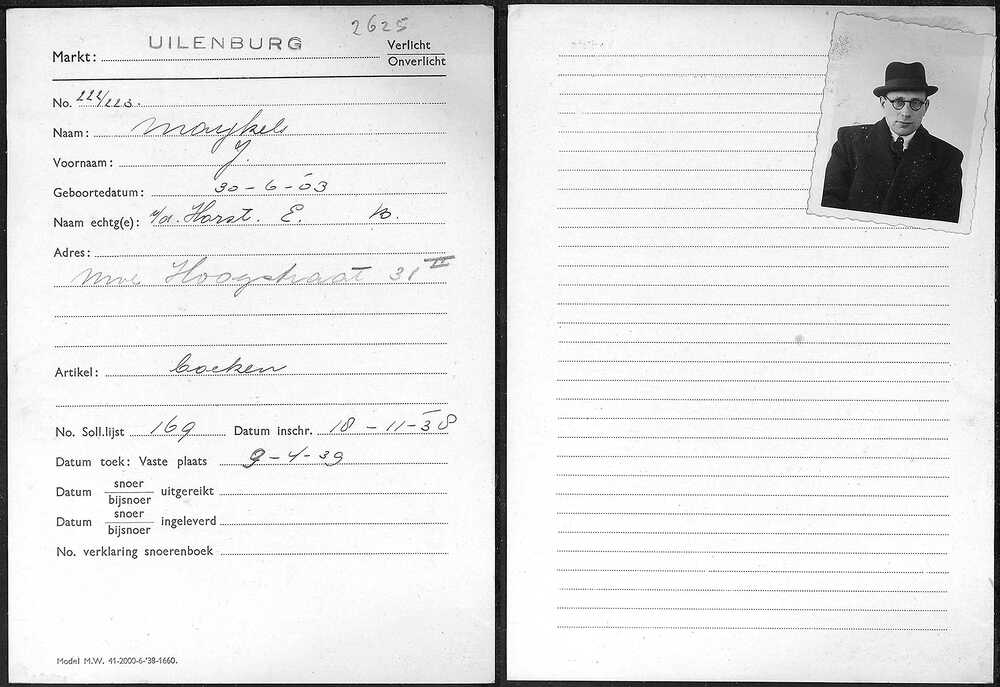 2625
Markt: UILENBURG Verlicht
Onverlicht
No. 222/223.
Naam:
Voornaam: J.
Geboortedatum: 30-6-03
Naam echtg(e): v/d. Horst. E.
Adres:
Hoogstraat 31 II
Artikel: boeken
No. Soll.lijst 169 Datum inschr. 18-11-38
Datum toek: Vaste plaats 9-4-39
Datum snoer
bijsnoer uitgereikt
Datum snoer
bijsnoer ingeleverd
No. verklaring snoerenboek
Model M.W. 41-2000-6-'38-1660.